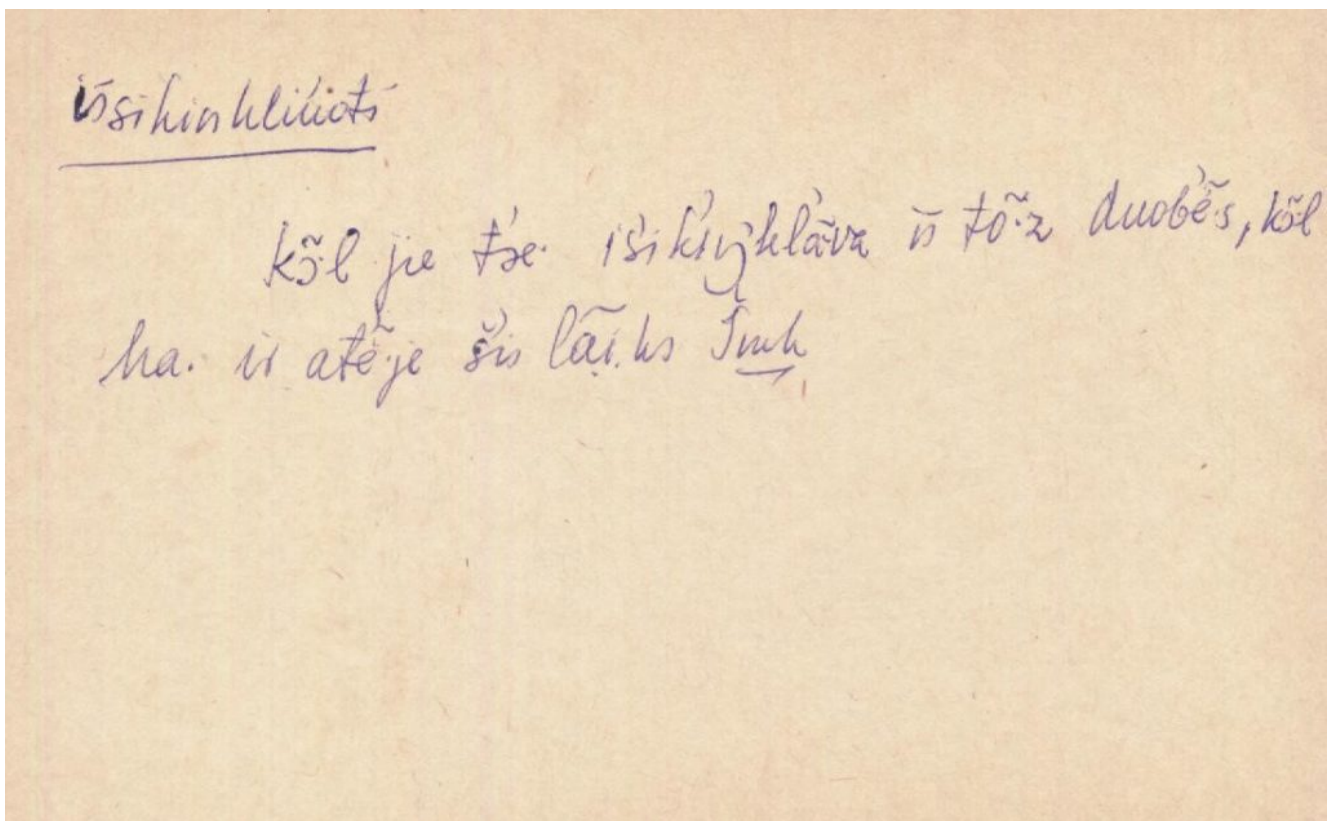 išsikinkliuoti
kõ·l je tæ· iśikiŋ́klãva iš tõ·z duobė̃·s, kõ·l
ka· ir atė̃·je šis lãi·ks Smk